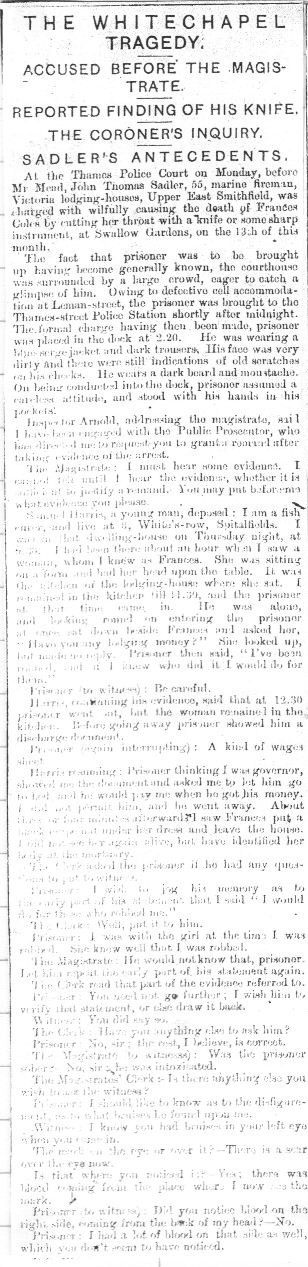 THE WHITECHAPEL
TRAGEDY.
ACCUSED BEFORE THE MAGIS-
TRATE.
REPORTED FINDING OF HIS KNIFE.
THE CORONER'S INQUIRY.
SADLER'S ANTECEDENTS.
At the Thames Police Court on Monday, before
Mr Mead, John Thomas Sadler, 55, marine fireman,
Victoria lodging-houses, Upper East Smithfield, was
charged with wilfully causing the death of Frances
Coles by cutting her throat with a knife or some sharp
instrument, at Swallow Gardens, on the 13th of this
month.
The fact that prisoner was to be brought
up having become generally known, the courthouse
was surrounded by a large crowd, eager to catch a
glimpse of him. Owing to defective cell accommoda-
tion at Leman-street, the prisoner was brought to the
Thames-street Police Station shortly after midnight.
The formal charge having then been made, prisoner
was placed in the dock at 2.20. He was wearing a
blue serge jacket and dark trousers. His face was very
dirty and there were still indications of old scratches
on his cheeks. He wears a dark beard and moustache.
On being conducted into the dock, prisoner assumed a
careless attitude, and stood with his hands in his
pockets.
Inspector Arnold, addressing the magistrate, said
I have been engaged with the Public Prosecutor, who
has directed me to request you to grant a remand after
taking evidence of the arrest.
The Magistrate: I must hear some evidence. I
cannot tell until I hear the evidence, whether it is
sufficient to justify a remand. You may put before me
what evidence you please.
Samuel Harris, a young man, deposed: I am a fish
curer, and live at 8, White's-row, Spitalfields. I
was in that dwelling-house on Thursday night, at
I had been there about an hour when I saw a
woman, whom I knew as Frances. She was sitting
on a form and had her head upon the table. It was
the kitchen of the lodging-house where she sat. I
remained in the kitchen till 11.30, and the prisoner
at that time came in. He was alone,
and looking round on entering the prisoner
at once sat down beside Frances and asked her,
"Have you any lodging money?" She looked up,
but made no reply. Prisoner then said, "I've been
robbed, and if I knew who did it I would do for
them."
Prisoner (to witness): Be careful.
Harris, continuing his evidence, said that at 12.30
prisoner went out, but the woman remained in the
kitchen. Before going away prisoner showed him a
discharge document.
Prisoner (again interrupting): A kind of wages
sheet
Harris resuming: Prisoner thinking I was governor,
showed me the document and asked me to let him go
to bed and he would pay me when he got his money.
I did not permit him, and he went away. About
three or four minutes afterwards I saw Frances put a
black crape hat under her dress and leave the house.
I did not see her again alive, but have identified her
body at the mortuary.
The Clerk asked the prisoner if he had any ques-
tions to put to witness.
Prisoner: I wish to jog his memory as to
the early part of his statement that I said "I would
do for those who robbed me."
The Clerk: Well, put it to him.
Prisoner: I was with the girl at the time I was
robbed. She knew well that I was robbed.
The Magistrate: He would not know that, prisoner.
Let him repeat the early part of his statement again.
The Clerk read that part of the evidence referred to.
Prisoner: You need not go further; I wish him to
verify that statement, or else draw it back.
Witness: You did say so.
The Clerk: Have you anything else to ask him?
Prisoner: No, sir; the rest, I believe, is correct.
The Magistrate (to witness): Was the prisoner
sober? No, sir; he was intoxicated.
The Magistrates' Clerk:- Is there anything else you
wish to ask the witness?
Prisoner: I should like to know as to the disfigure-
ment, as to what bruises he found upon me.
Witness: I know you had bruises in your left eye
when you came in.
The mark on the eye or over it?—There is a scar
over the eye now.
Is that where you noticed it?—Yes; there was
blood coming from the place where I now see the
mark.
Prisoner (to witness): Did you notice blood on the
right side, coming from the back of my head?—No.
Prisoner: I had a lot of blood on that side as well,
which you don't seem to have noticed.